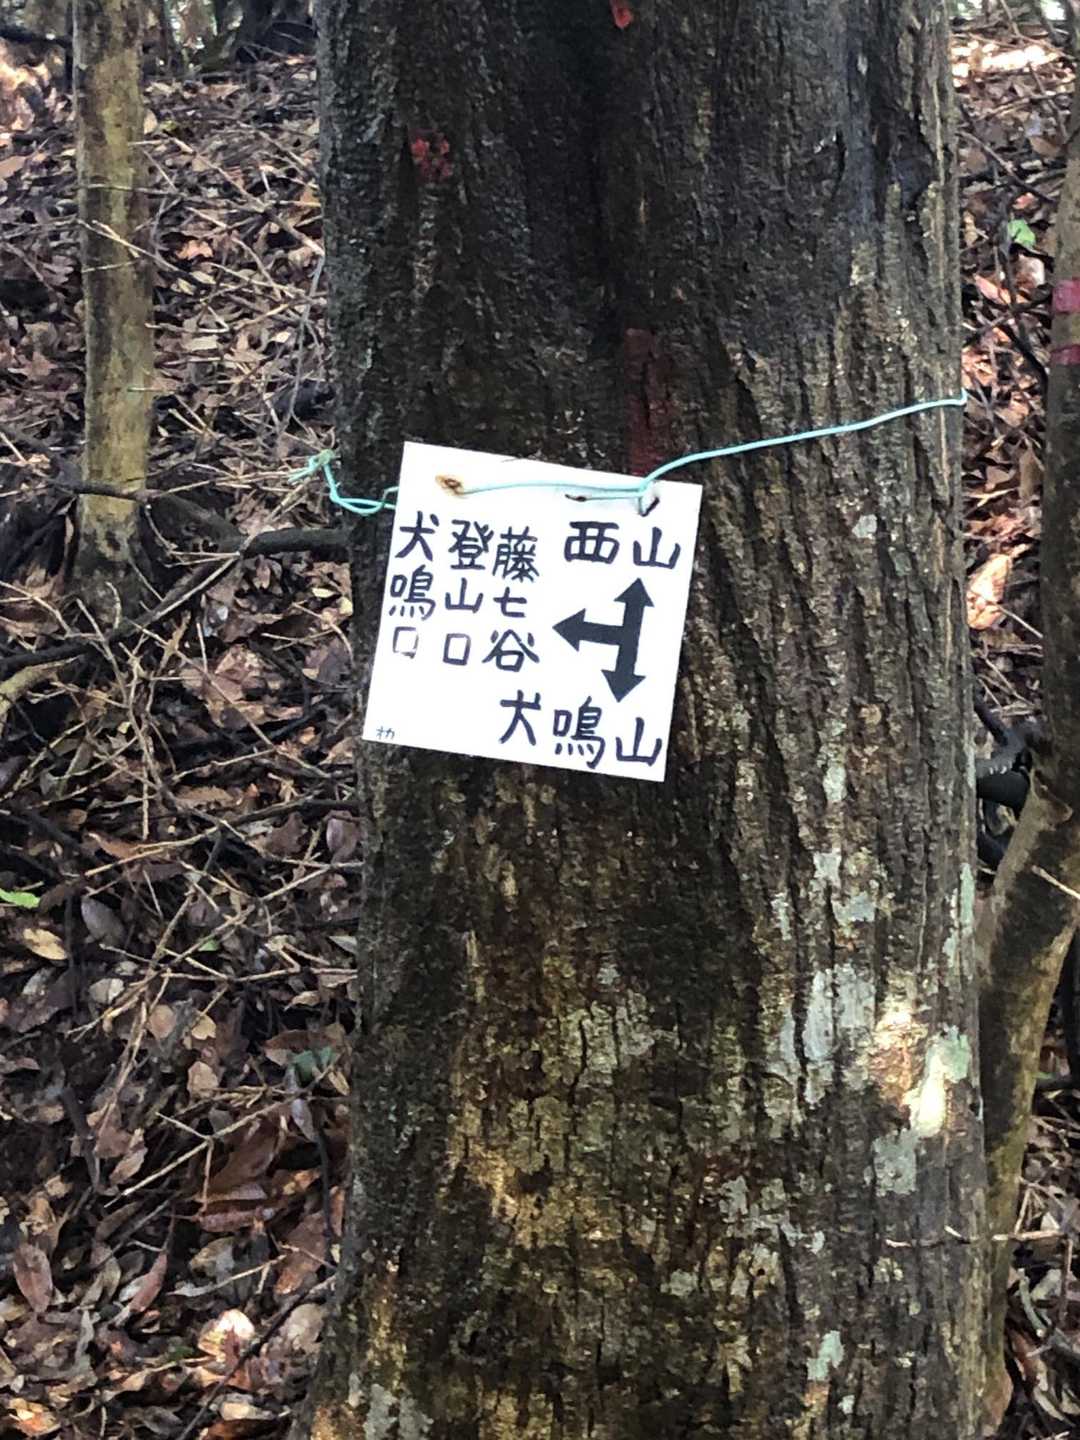 西山
藤七谷
登山口
犬鳴口
犬鳴山
オカ